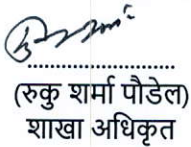 (रुकु शर्मा पौडेल)
शाखा अधिकृत